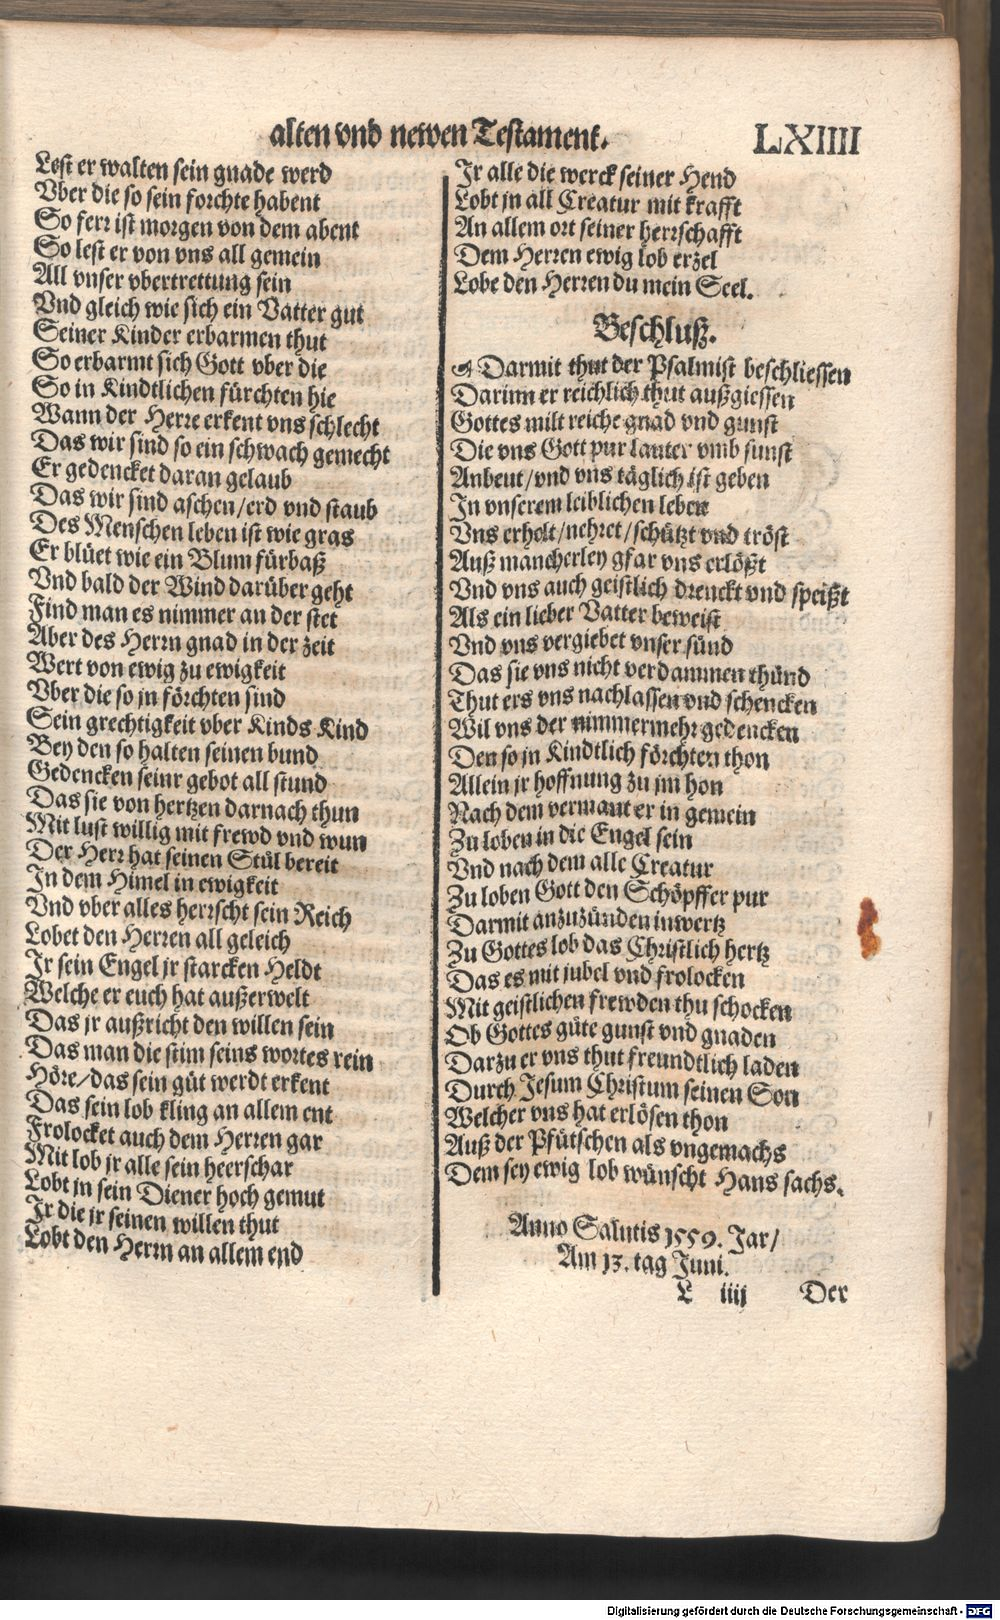 alten vnd newen Testament.
LXIIII
Lest er walten sein gnade werd
Vber die so sein forchte habent
So ferr ist morgen von dem abent
So lest er von vns all gemein
All vnser vbertrettung sein
Vnd gleich wie sich ein Vatter gut
Seiner Kinder erbarmen thut
So erbarmt sich Gott vber die
So in Kindtlichen fürchten hie
Wann der Herre erkent vns schlecht
Das wir sind so ein schwach gemecht
Er gedencket daran gelaub
Das wir sind aschen/erd vnd staub
Des Menschen leben ist wie gras
Er blüet wie ein Blum fürbaß
Vnd bald der Wind darüber geht
Find man es nimmer an der stet
Aber des Herrn gnad in der zeit
Wert von ewig zu ewigkeit
Vber die so jn förchten sind
Sein grechtigkeit vber Kinds Kind
Bey den so halten seinen bund
Gedencken seinr gebot all stund
Das sie von hertzen darnach thun
Mit lust willig mit frewd vnd wun
Der Herr hat seinen Stůl bereit
In dem Himel in ewigkeit
Vnd vber alles herrscht sein Reich
Lobet den Herren all geleich
Jr sein Engel jr starcken Heldt
Welche er euch hat außerwelt
Das jr außricht den willen sein
Das man die stim seins wortes rein
Höre/das sein güt werdt erkent
Das sein lob kling an allem ent
Frolocket auch dem Herren gar
Mit lob jr alle sein heerschar
Lobt jn sein Diener hoch gemut
Jr die jr seinen willen thut
Lobt den Herrn an allem end
Jr alle die werck seiner Hend
Lobt jn all Creatur mit krafft
An allem ort seiner herrschafft
Dem Herren ewig lob erzel
Lobe den Herren du mein Seel.
Beschluß.
Darmit thut der Psalmist beschliessen
Darinn er reichlich thut außgiessen
Gottes milt reiche gnad vnd gunst
Die vns Gott pur lauter vmb sunst
Anbeut/vnd vns täglich ist geben
In vnserem leiblichen leben
Vns erholt/nehret/schützt vnd tröst
Auß mancherley gfar vns erlößt
Vnd vns auch geistlich drenckt vnd speißt
Als ein lieber Vatter beweist
Vnd vns vergiebet vnser sünd
Das sie vns nicht verdammen thünd
Thut ers vns nachlassen vnd schencken
Wil vns der nimmermehr gedencken
Den so jn Kindtlich förchten thon
Allein jr hoffnung zu jm hon
Nach dem vermant er in gemein
Zu loben in die Engel sein
Vnd nach dem alle Creatur
Zu loben Gott den Schöpffer pur
Darmit anzuzünden inwertz
Zu Gottes lob das Christlich hertz
Das es mit jubel vnd frolocken
Mit geistlichen frewden thu schocken
Ob Gottes güte gunst vnd gnaden
Darzu er vns thut freundtlich laden
Durch Jesum Christum seinen Son
Welcher vns hat erlösen thon
Auß der Pfütschen als vngemachs
Dem sey ewig lob wünscht Hans sachs.
Anno Salutis 1559. Jar/
Am 13. tag Juni.
L iiij Der
Digitalisierung gefördert durch die Deutsche Forschungsgemeinschaft - DFG